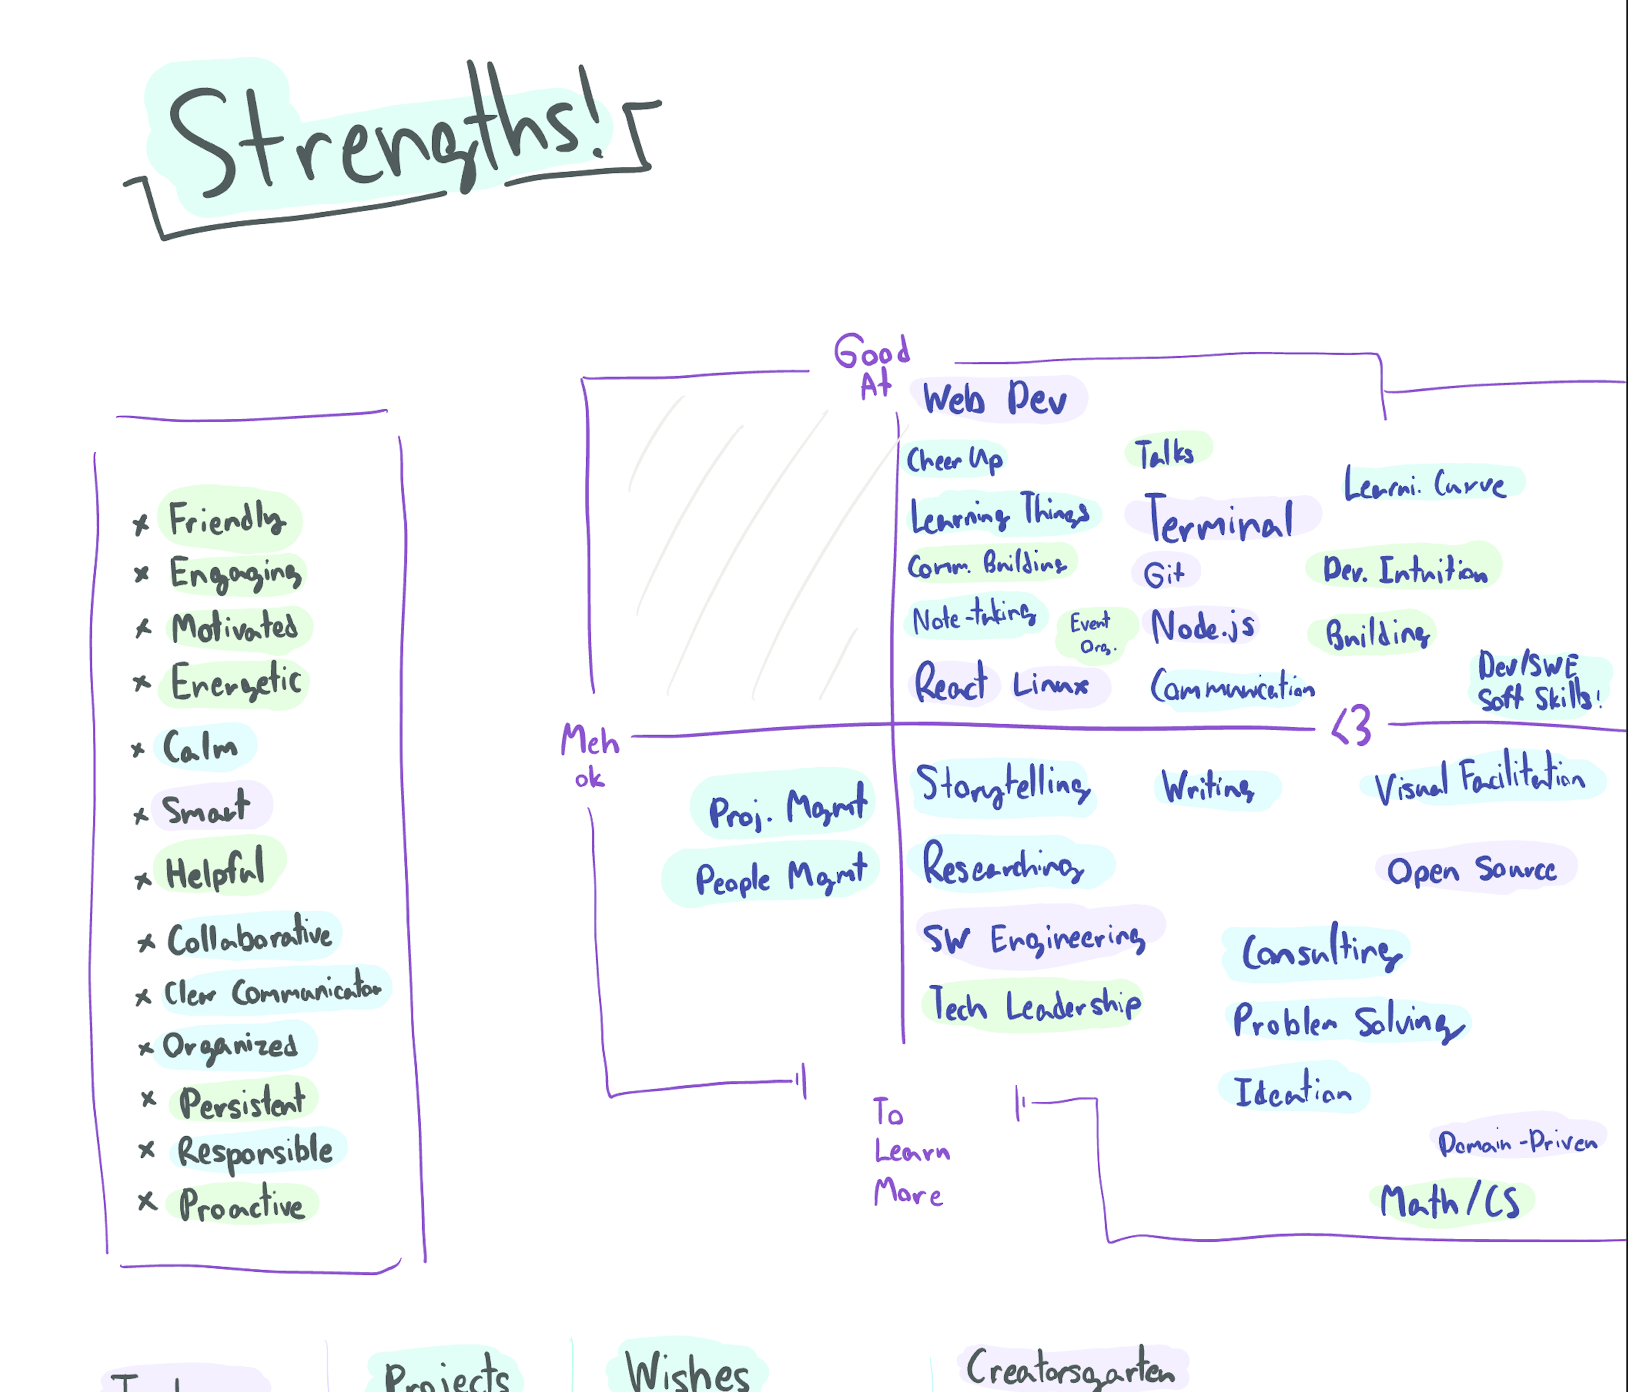 Strengths!
x Friendly
x Engaging
x Motivated
x Energetic
x Calm
x Smart
x Helpful
x Collaborative
x Clear Communicator
x Organized
x Persistent
x Responsible
x Proactive
Good
At
Meh
ok
<3
To
Learn
More
Web Dev
Cheer Up
Talks
Learni. Curve
Learning Things
Terminal
Comm. Building
Git
Dev. Intuition
Note-taking
Event
Org.
Node.js
Building
React
Linux
Communication
Dev/SWE
Soft Skills!
Proj. Mgmt
People Mgmt
Storytelling
Writing
Visual Facilitation
Researching
Open Source
SW Engineering
Consulting
Tech Leadership
Problem Solving
Ideation
Domain-Driven
Math/CS
Projects
Wishes
Creatorsgarten